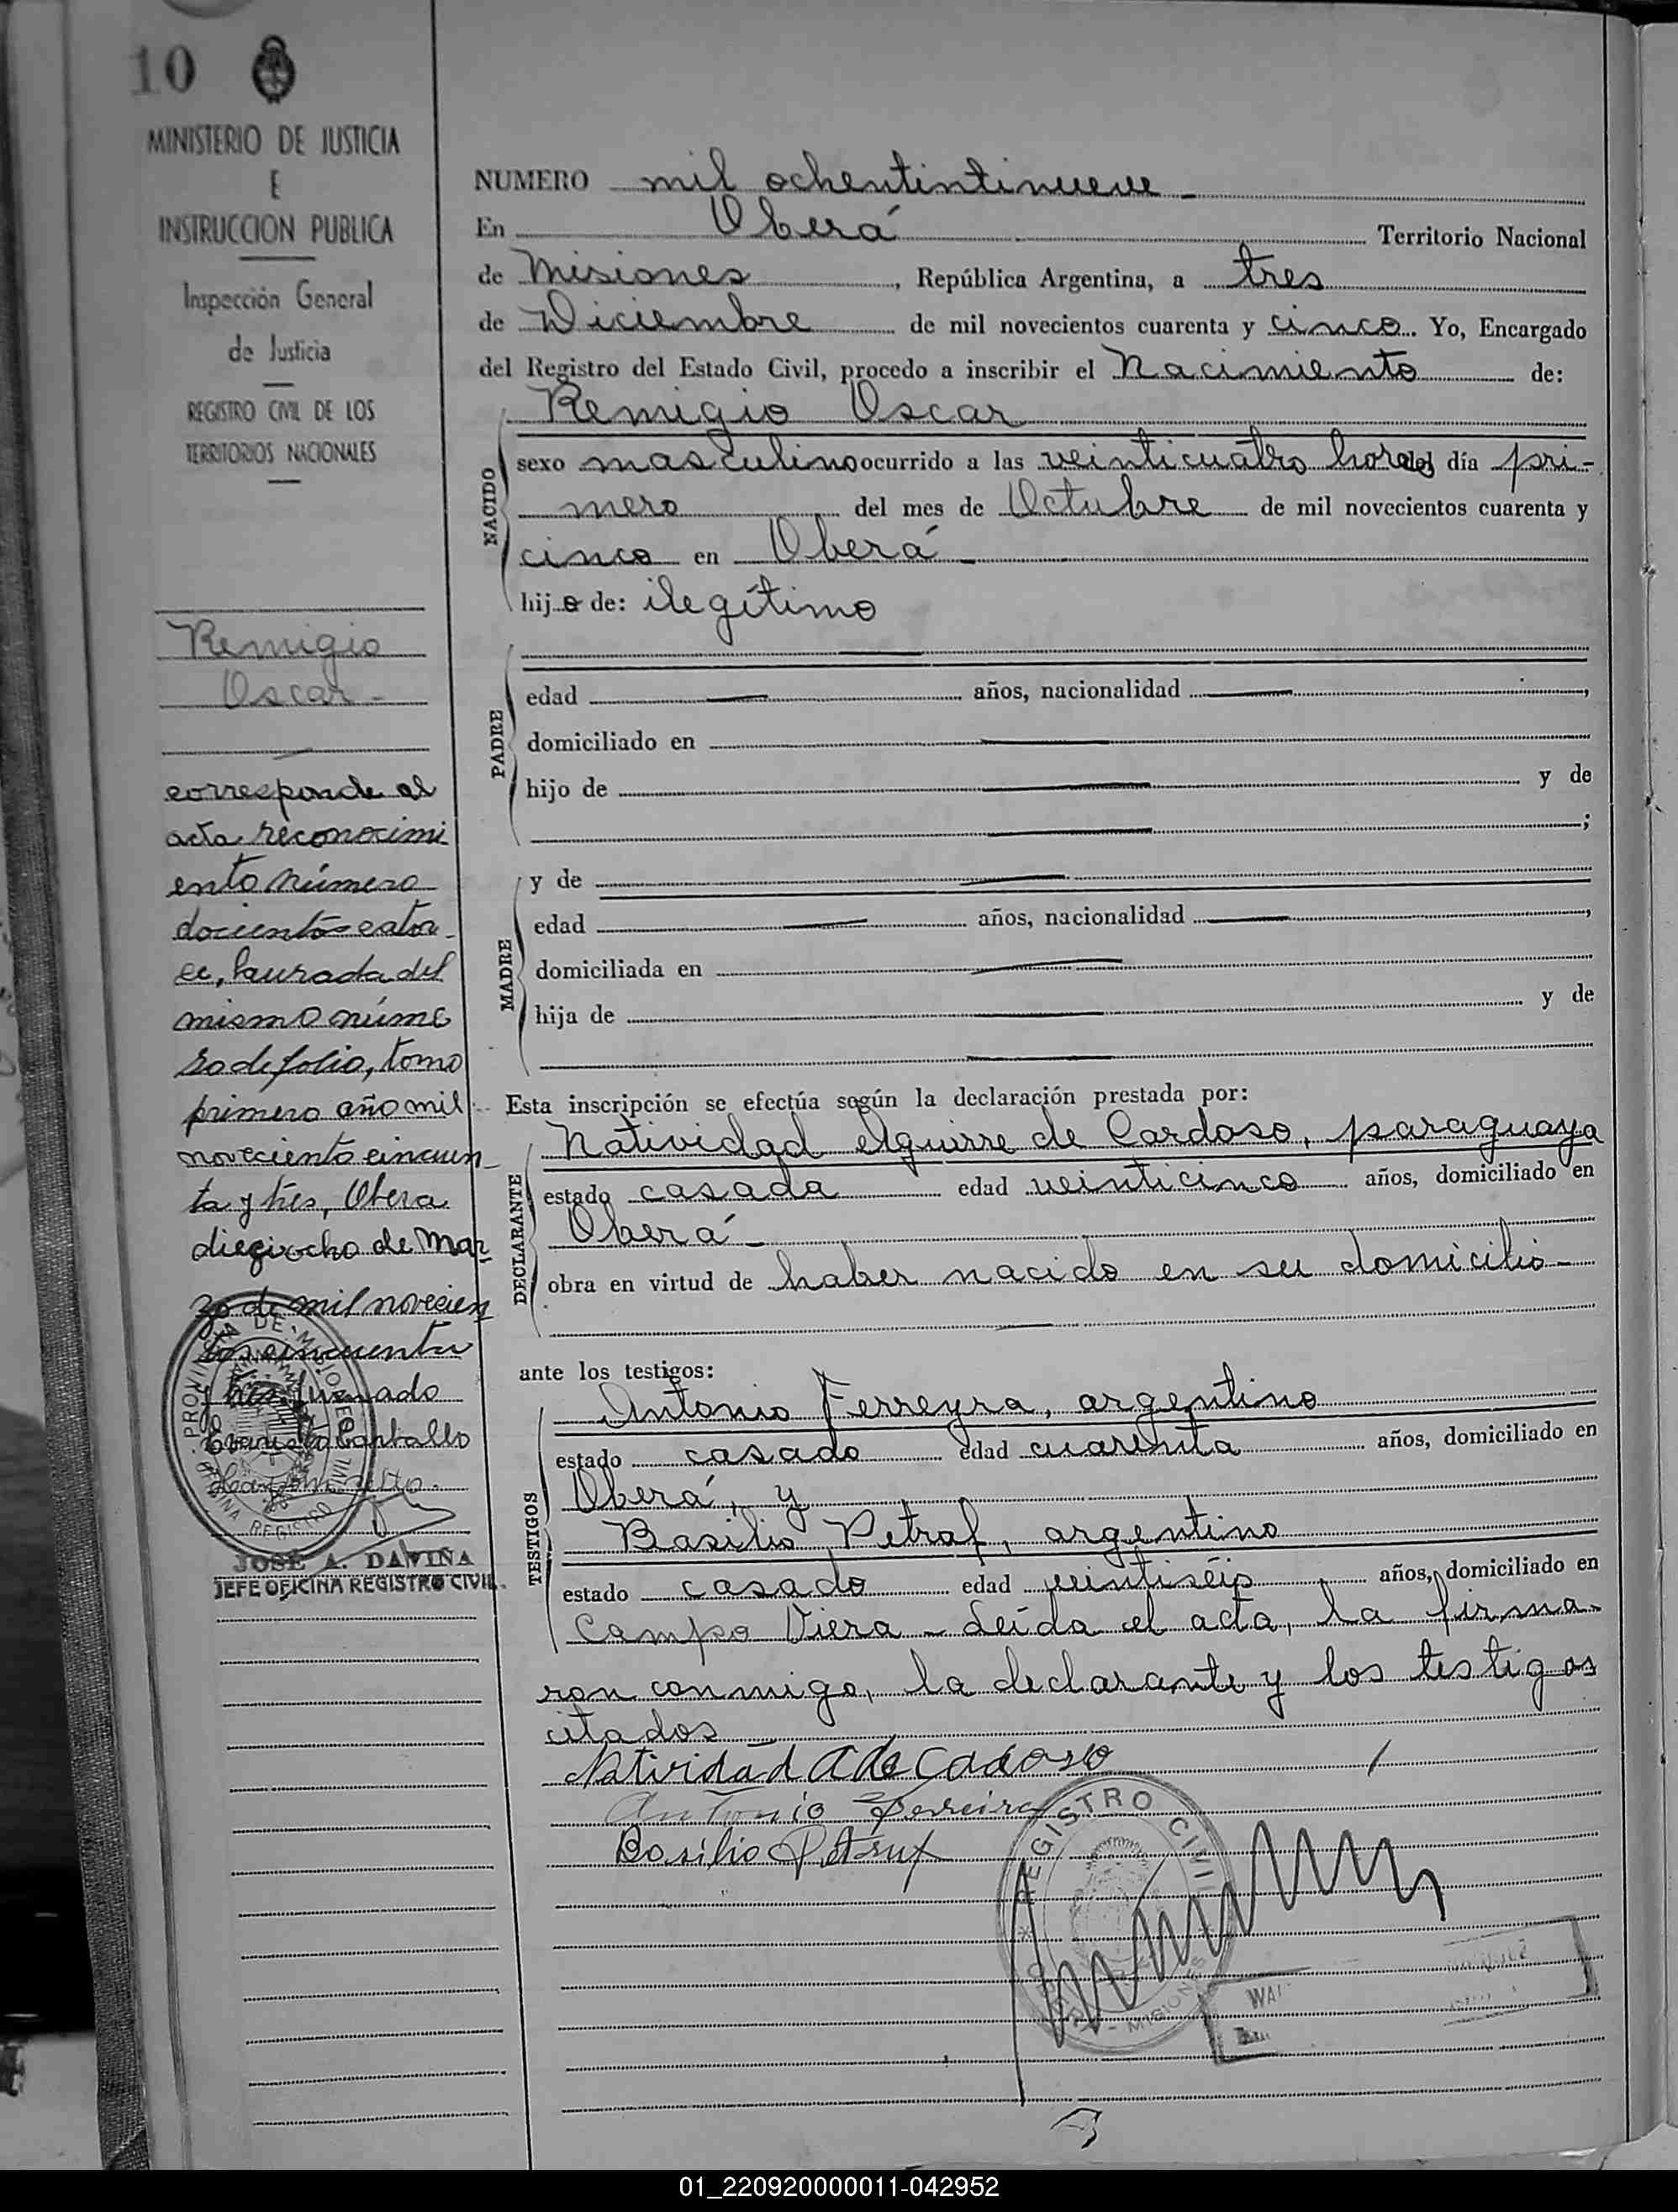 10
MINISTERIO DE JUSTICIA
E
INSTRUCCION PUBLICA
Inspección General
de Justicia
REGISTRO CIVIL DE LOS
TERRITORIOS NACIONALES
Remigio
Oscar -
corresponde al
acta reconocimi
ento número
docientos cator
ce, laurada del
mismo núme
ro de folio, tomo
primero año mil
noveciento cincuen
ta y tres, Obera
diegiocho de Mar
zo de mil novecien
tos cincuenta
y tres firmado
JOSÉ A. DAVIÑA
JEFE OFICINA REGISTRO CIVIL
NUMERO mil ochentintinueve -
En Oberá Territorio Nacional
de Misiones, República Argentina, a tres
de Diciembre de mil novecientos cuarenta y cinco. Yo, Encargado
del Registro del Estado Civil, procedo a inscribir el Nacimiento de:
NACIDO
Remigio Oscar
sexo masculino ocurrido a las veinticuatro horas del día pri-
mero del mes de Octubre de mil novecientos cuarenta y
cinco en Oberá -
hijo de: ilegítimo
PADRE
edad años, nacionalidad ,
domiciliado en
hijo de y de
;
MADRE
y de
edad años, nacionalidad ,
domiciliada en
hija de y de
Esta inscripción se efectúa según la declaración prestada por:
DECLARANTE
Natividad Aguirre de Cardoso, paraguaya
estado casada edad veinticinco años, domiciliado en
Oberá -
obra en virtud de haber nacido en su domicilio -
ante los testigos:
TESTIGOS
Antonio Ferreyra, argentino
estado casado edad cuarenta años, domiciliado en
Oberá, y
Basilio Petraf, argentino
estado casado edad veintiséis años, domiciliado en
Campo Viera - Leída el acta, la firma-
ron conmigo, la declarante y los testigos
citados
Natividad A de Cardoso
Antonio Ferreira
Basilio
REGISTRO CIVIL
MISIONES
01_220920000011-042952